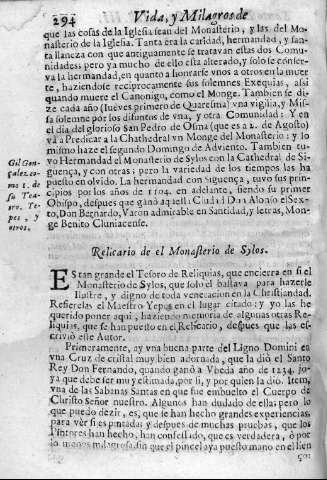 294 Vida, y Milagros de
que las cosas de la Iglesia sean del Monasterio, y las del Mo-
nasterio de la Iglesia. Tanta era la caridad, hermandad, y san-
ta llaneza con que antiguamente se tratavan estas dos Comu-
nidades; pero ya mucho de ello esta alterado, y solo se conser-
va la hermandad, en quanto a honrarse vnos a otros en la muer
te, haziendose reciprocamente sus solemnes Exequias, assi
quando muere el Canonigo, como el Monge. Tambien se di-
ze cada año (Iueves primero de Quaresma) vna vigilia, y Missa
solemne por los difuntos de vna, y otra Comunidad: Y en
el dia del glorioso San Pedro de Osma (que es a 2. de Agosto)
và a Predicar a la Chathedral vn Monge del Monasterio: y lo
mismo haze el segundo Domingo de Adviento. Tambien tu-
vo Hermandad el Monasterio de Sylos con la Cathedral de Si-
guença, y con otras: pero la variedad de los tiempos las ha
puesto en olvido. La hermandad con Siguença, tuvo sus prin-
cipios por los años de 1104. en adelante, siendo su primer
Obispo, despues que ganò aquella Ciudad Don Alonso el Sex-
to, Don Bernardo, Varon admirable en Santidad, y letras, Mon-
ge Benito Cluniacense.
Gil Gon-
çalez, to-
mo 1. de
su Tea-
tro. Ye-
pes, y
otros.
Relicario de el Monasterio de Sylos.
Es tan grande el Tesoro de Reliquias, que encierra en si el
Monasterio de Sylos, que solo el bastava para hazerle
Ilustre, y digno de toda veneracion en la Christiandad.
Refierelas el Maestro Yepes en el lugar citado; y yo las he
querido poner aqui, haziendo memoria de algunas otras Re-
liquias, que se han puesto en el Relicario, despues que las es-
crivió este Autor.
Primeramente, ay vna buena parte del Ligno Domini en
vna Cruz de cristal muy bien adornada, que la diò el Santo
Rey Don Fernando, quando ganò a Vbeda año de 1234. jo-
ya que debe ser muy estimada, por si, y por quien la dio. Item,
vna de las Sabanas Santas en que fue embuelto el Cuerpo de
Christo Señor nuestro. Algunos han dudado de ella; pero lo
que puedo dezir, es, que se han hecho grandes experiencias,
para vèr si es pintada; y despues de muchas pruebas, que los
Pintores han hecho, han confessado, que es verdadera, ò por
lo menos milagrosa, sin que el pincel aya puesto mano en el lien
ço: